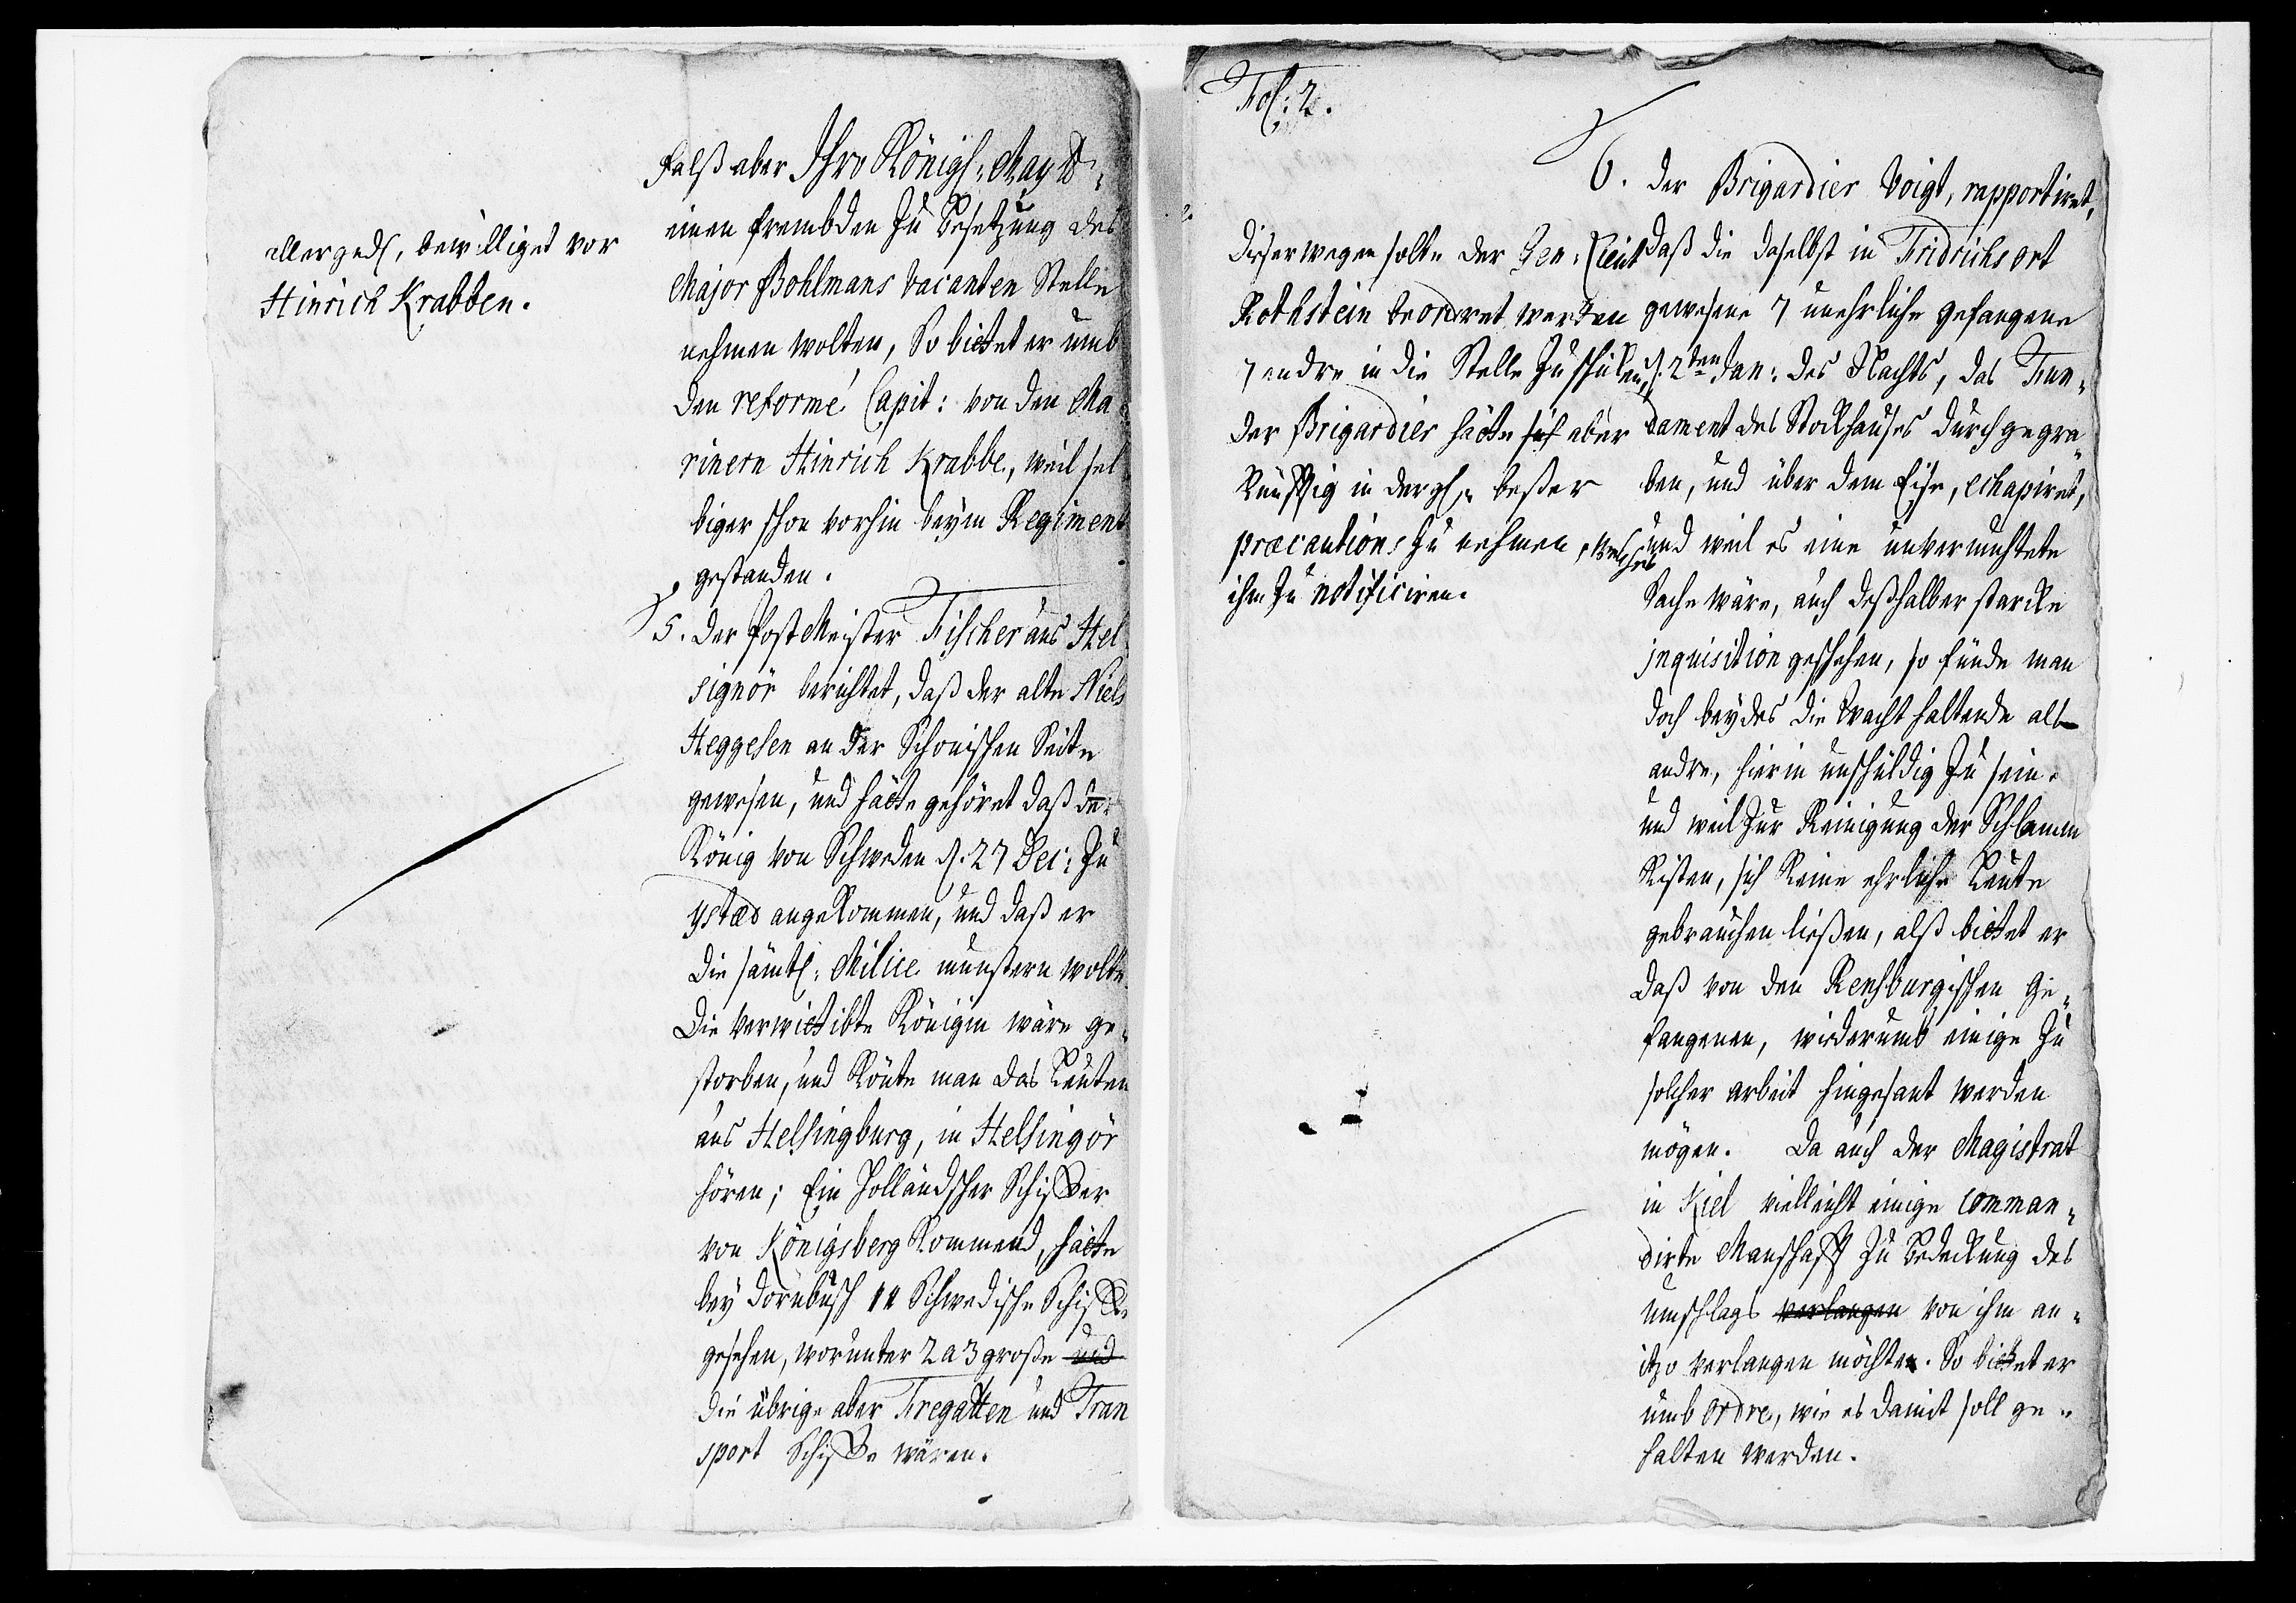 allergdl, bewilliget vor
Hinrich Krabben.
falß aber Ihro Königl: Mayt:
einen frembden zu Besetzung des
Major Bohlmans vacanten Stelle
nehmen wolten, So bittet er umb
den reformé Capit: von den Ma
rinern Hinrich Krabbe, weil sel
biger schon vorhin beym Regiment
gestanden.
5. Der PostMeister Fischer aus Hel
signör berichtet, daß der alte Niels
Heggesen an der Schonischen Seite
gewesen, und hätte gehöret daß der
König von Schweden d. 27 Dec: zu
ystæd angekommen, und daß er
die sämtl: Milice munstern wolte
Die verwittibte Königin wäre ge-
storben, und könte man das Leuten
aus Helsingburg, in Helsingör
hören; Ein Holländscher Schiffer
von Königsberg kommend, hätte
bey Dornbusch 14 Schwedische Schiffe
gesehen, worunter 2 a 3 große und
die übrige aber Fregatten und Tran
sport Schiffe wären.
Fol: 2.
Diserwegen solte der Gen: Lieut
Rothstein beordret werden
7 andre in die Stelle zu schicken,
der Brigardier hätte sich aber
künfftig in dergl. beßer
præcautions zu nehmen, welches
ihm zu notificiren.
6. Der Brigardier Voigt, rapportiret,
daß die daselbst in Fridrichsort
gewesene 7 unehrliche gefangene
d. 2ten Jan: des Nachts, das Fun-
dament des Stockhauses durchgegra-
ben, und über dem Eise, echapiret,
und weil es eine unvermuhtete
Sache wäre, auch deßhalber starcke
inquisition geschehen, so fünde man
doch beydes die Wacht haltende alß
andre, hierin unschuldig zu sein.
und weil zur Reinigung der Schlamm
Kisten, sich keine ehrliche Leute
gebrauchen ließen, alß bittet er
daß von den Rensburgischen Ge-
fangenen, wiederumb einige zu
solcher arbeit hingesant werden
mögen. Da auch der Magistrat
in Kiel vielleicht einige comman-
dirte Manschafft zu Bedeckung des
umschlags verlangen von ihm an-
itzo verlangen möchte. So bittet er
umb ordre, wie es damit soll ge-
halten werden.